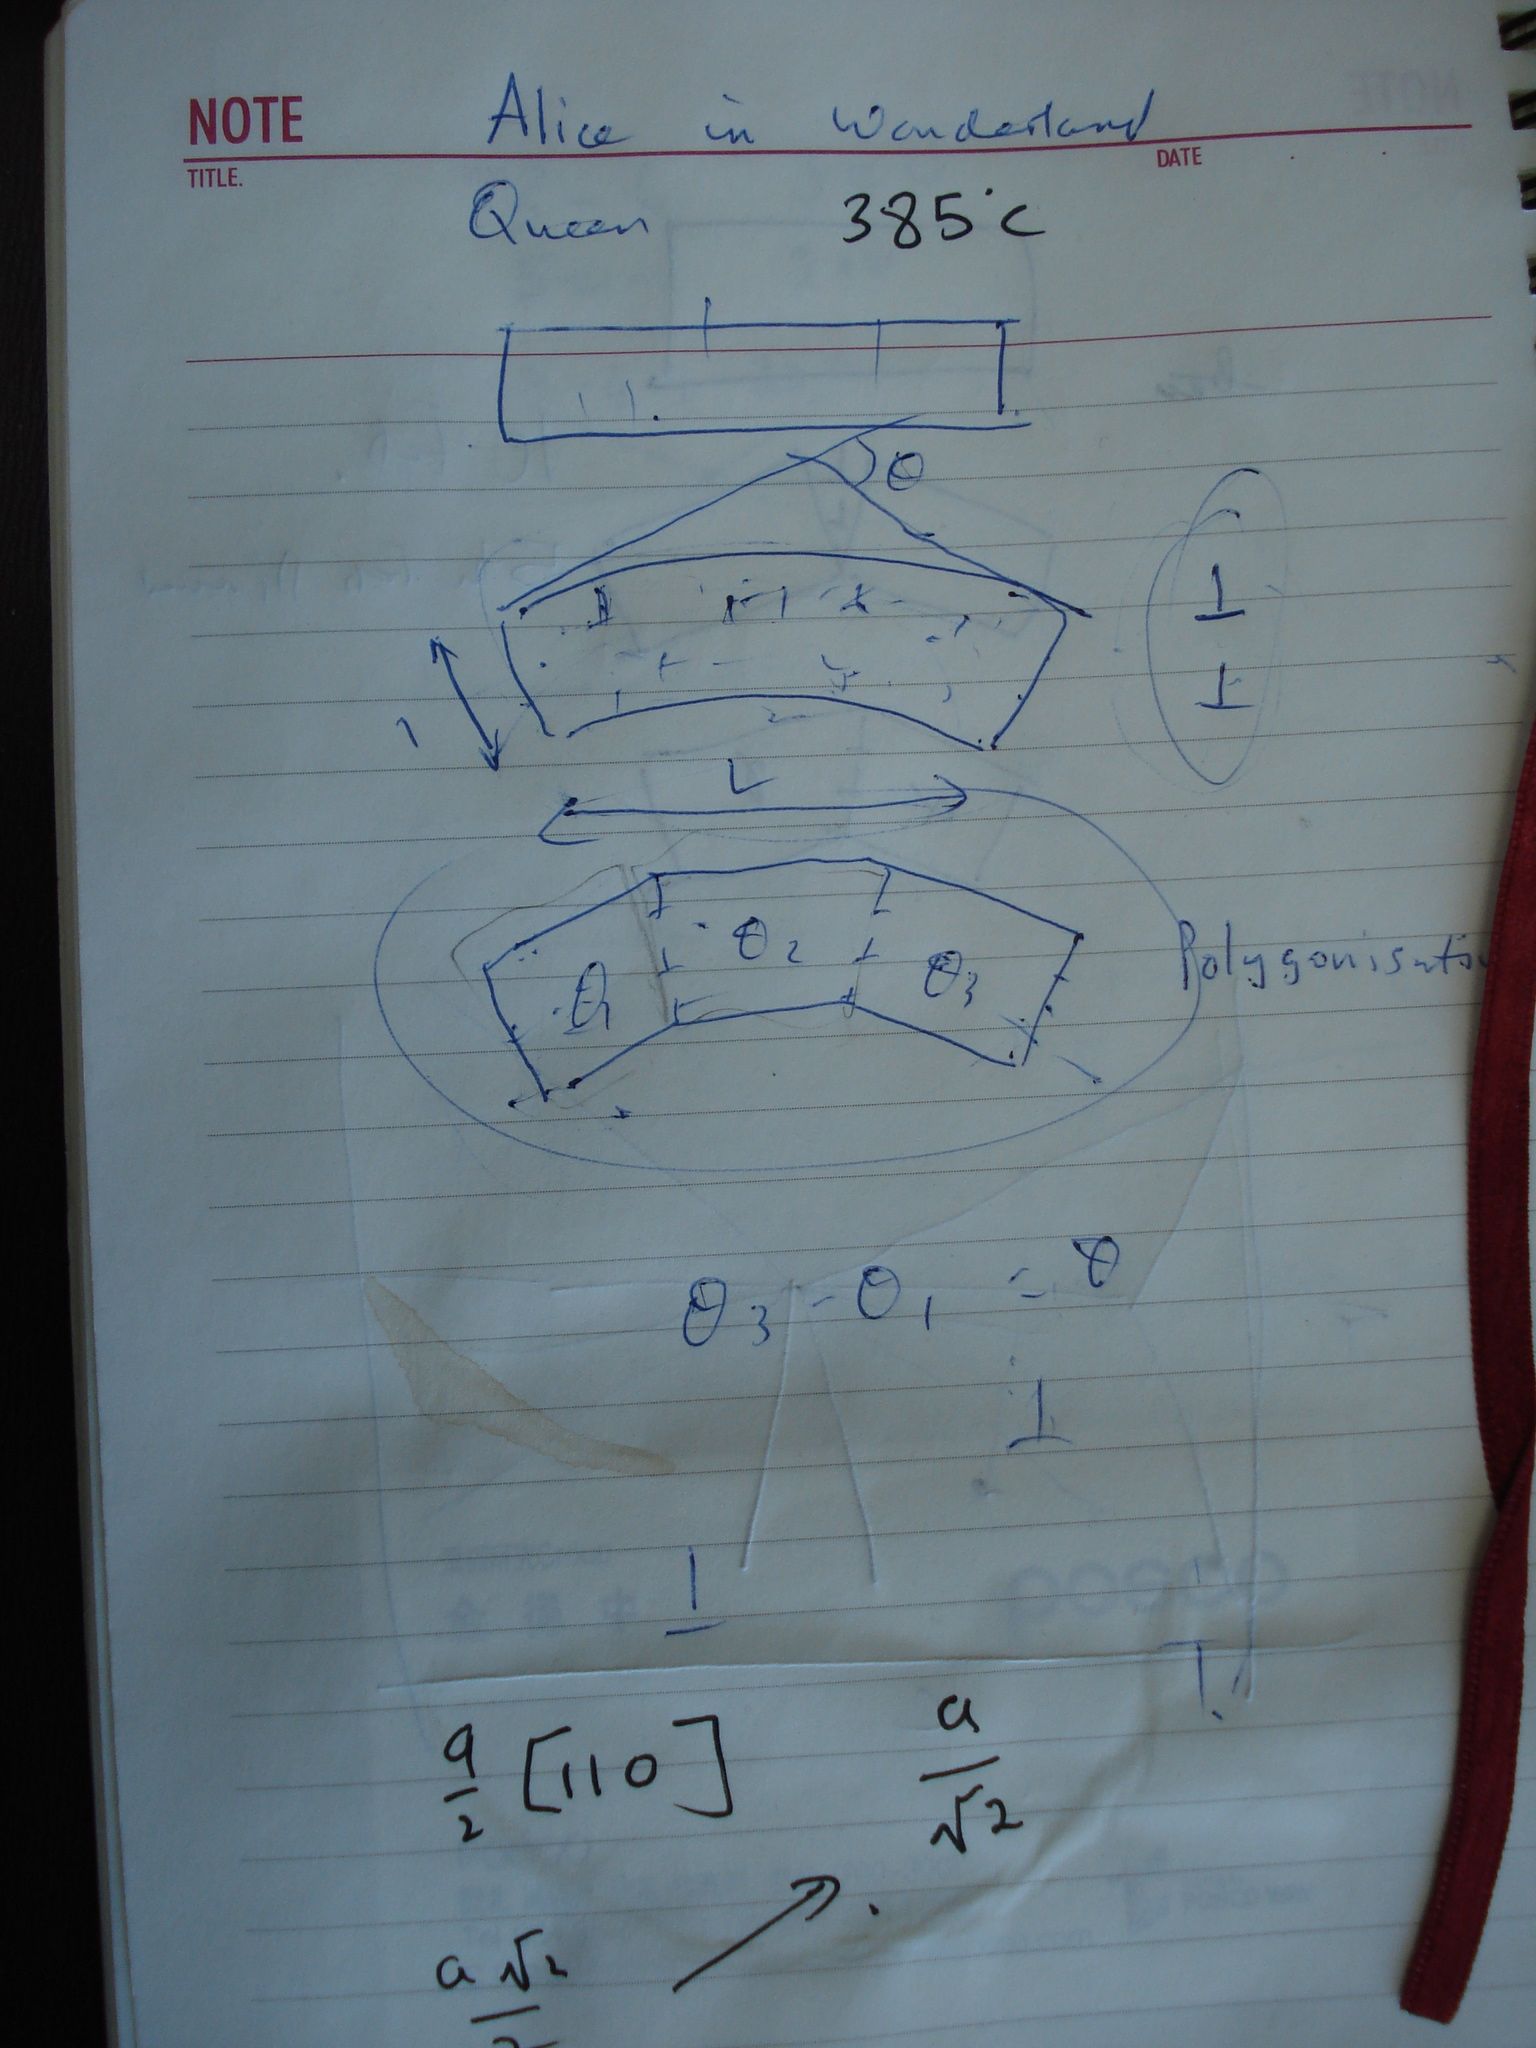 NOTE Alice in Wonderland
TITLE. DATE
Queen 385°C
θ
L
θ1 θ2 θ3 Polygonisation
θ3 - θ1 = θ
a/2 [110] a/√2
a√2/2